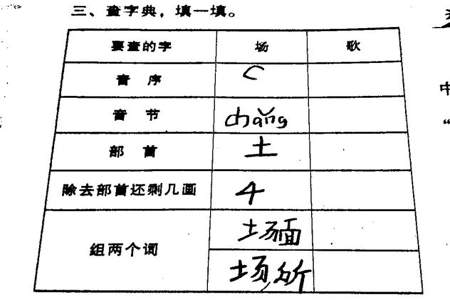 三、查字典，填一填。
要查的字 场 歌
音序 C
音节 chǎng
部首 土
除去部首还剩几画 4
组两个词 场面
场所
中
“